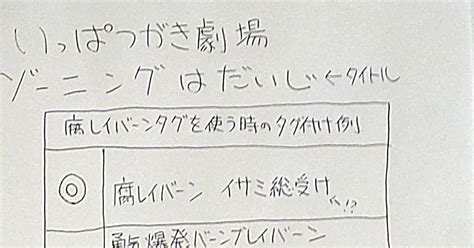 いっぱつがき劇場
ゾーニングはだいじ←タイトル
腐レイバーンタグを使う時のタグ付け例
◎ 腐レイバーン イサミ総受け ←!?
勇気爆発バーンブレイバーン